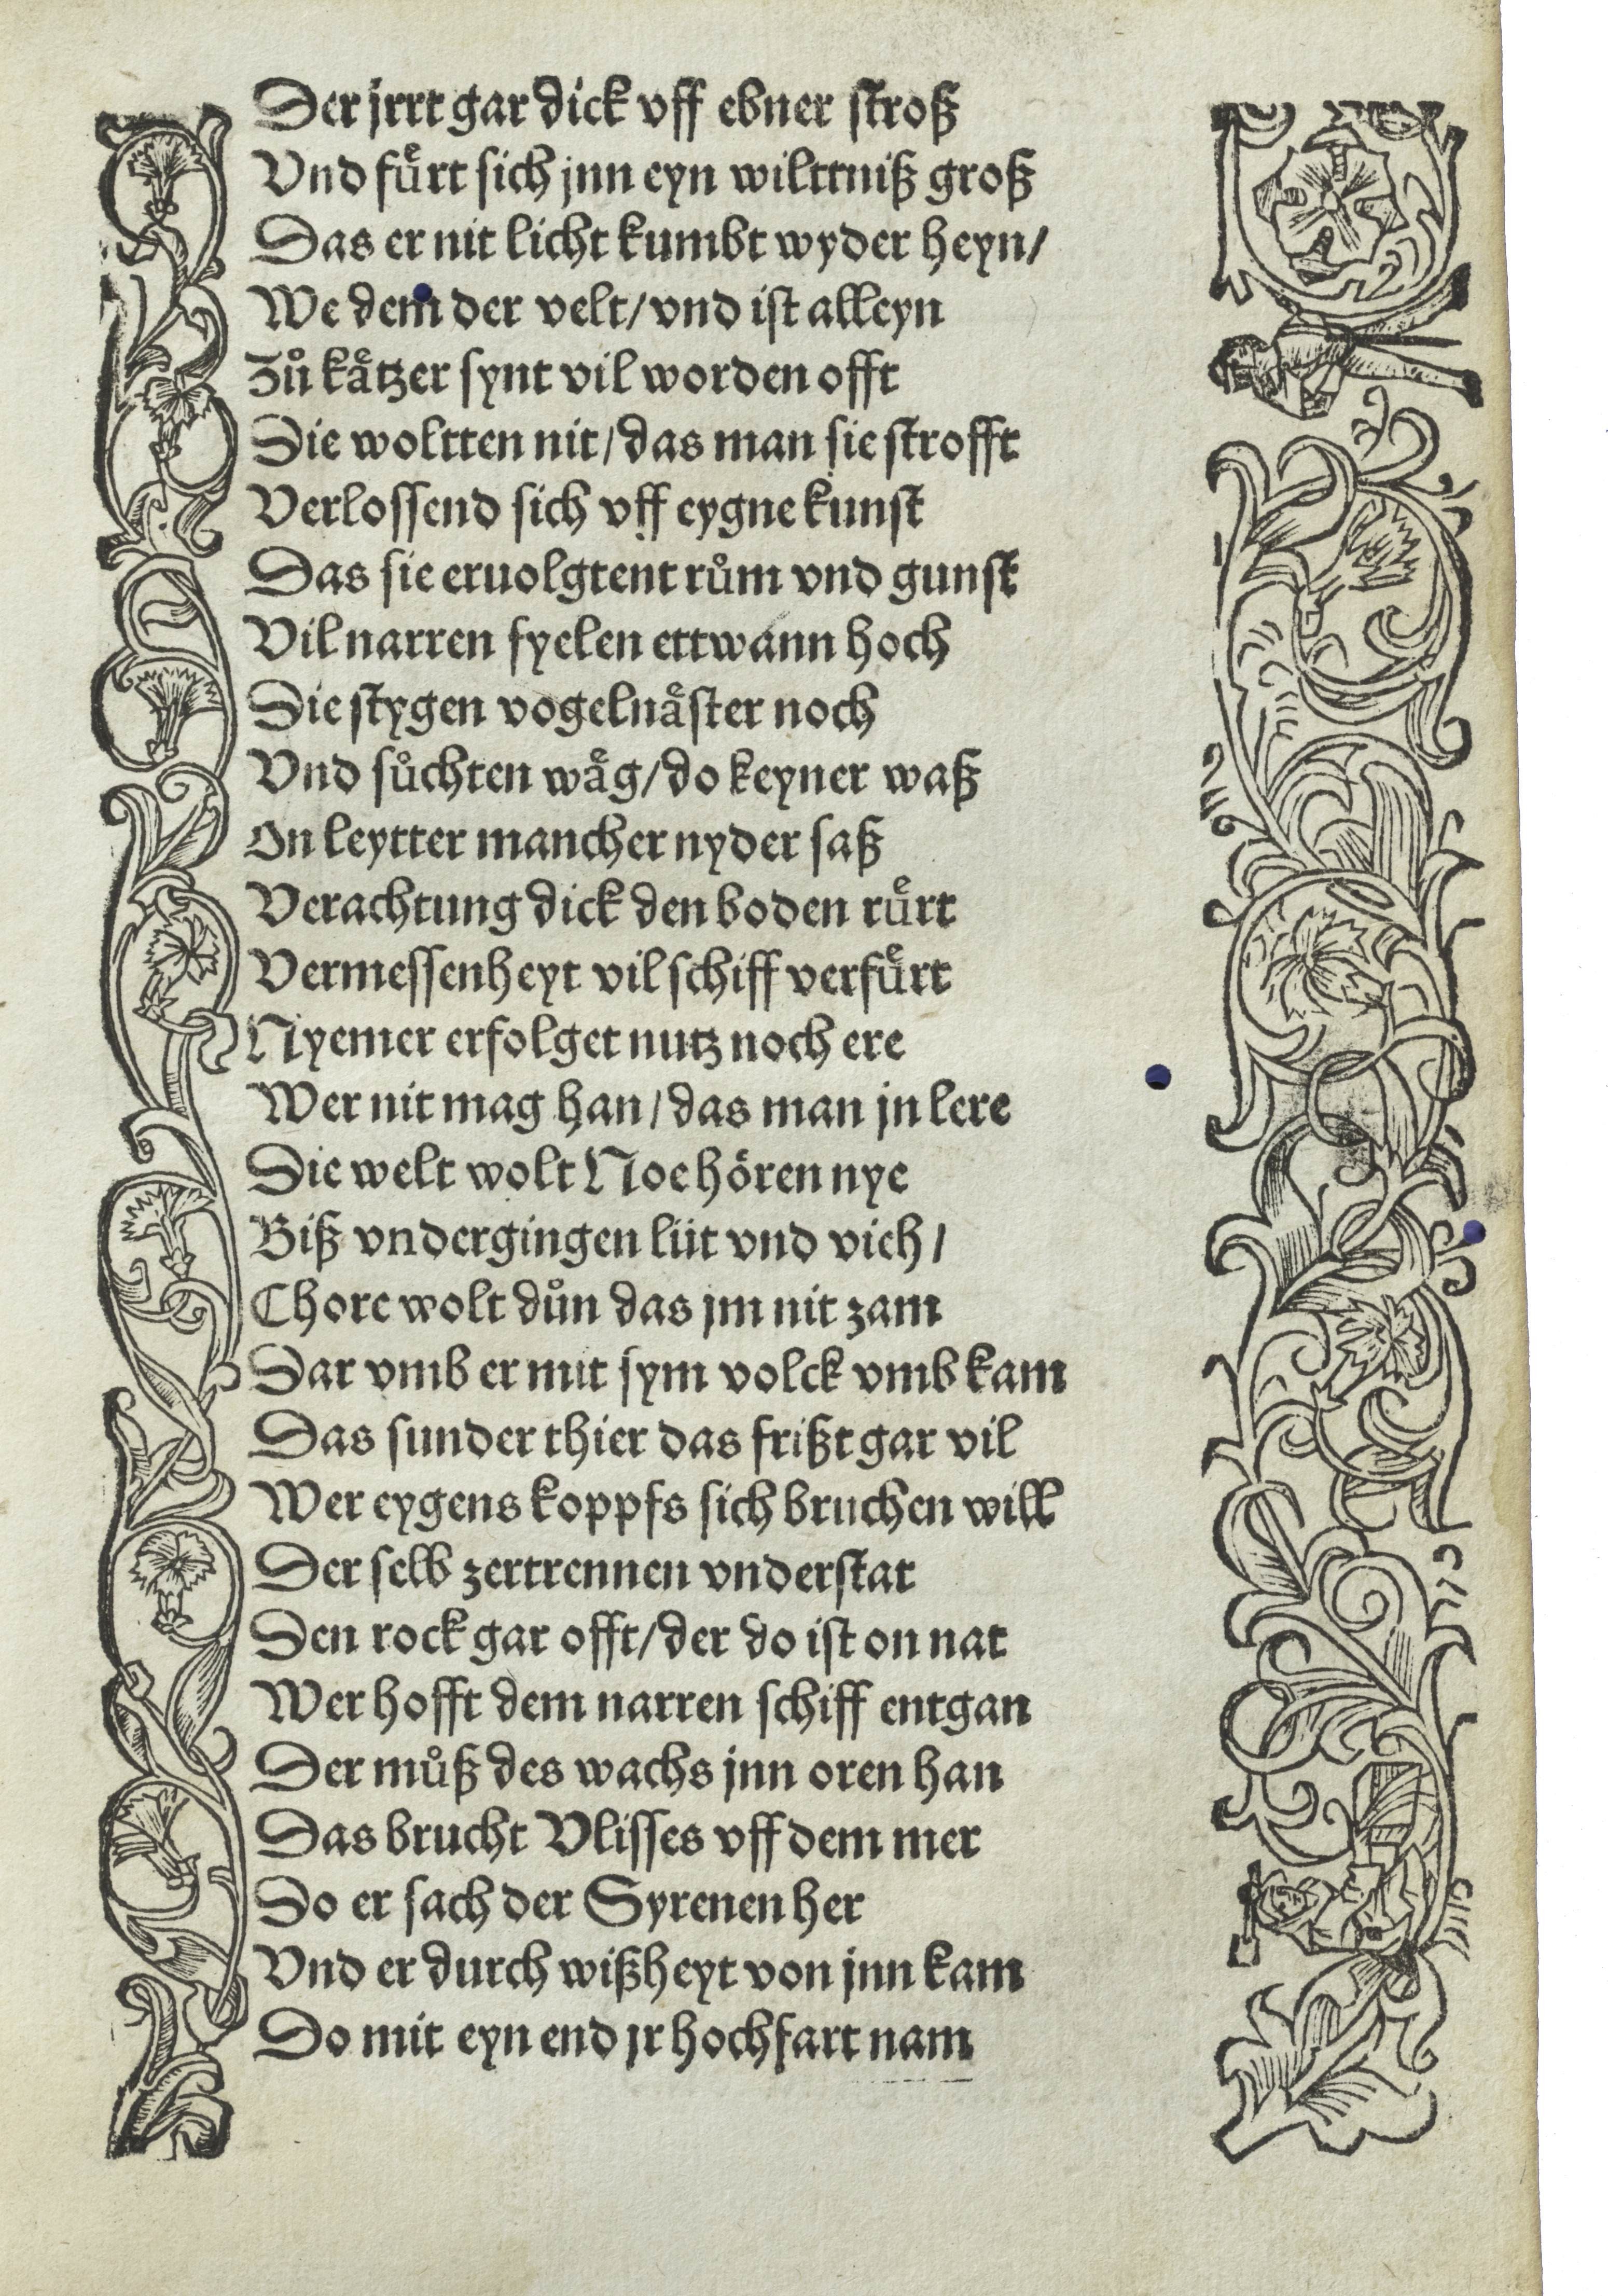 Der jrrt gar dick vff ebner stroß
Vnd fuͤrt sich jnn eyn wilttniß groß
Das er nit licht kumbt wyder heyn/
We dem der velt/ vnd ist alleyn
Zuͦ kaͤtzer synt vil worden offt
Die woltten nit/ das man sie strofft
Verlossend sich vff eygne kunst
Das sie eruolgtent ruͦm vnd gunst
Vil narren fyelen ettwann hoch
Die stygen vogelnaͤster noch
Vnd suͦchten waͤg/ do keyner waß
On leytter mancher nyder saß
Verachtung dick den boden ruͤrt
Vermessenheyt vil schiff verfuͤrt
Nyemer erfolget nutz noch ere
Wer nit mag han/ das man jn lere
Die welt wolt Noe hoͤren nye
Biß vndergingen lüt vnd vich/
Chore wolt duͦn das jm nit zam
Dar vmb er mit sym volck vmb kam
Das sunder thier das frißt gar vil
Wer eygens koppfs sich bruchen will
Der selb zertrennen vnderstat
Den rock gar offt/ der do ist on nat
Wer hofft dem narren schiff entgan
Der muͦß des wachs jnn oren han
Das brucht Vlisses vff dem mer
Do er sach der Syrenen her
Vnd er durch wißheyt von jnn kam
Do mit eyn end jr hochfart nam